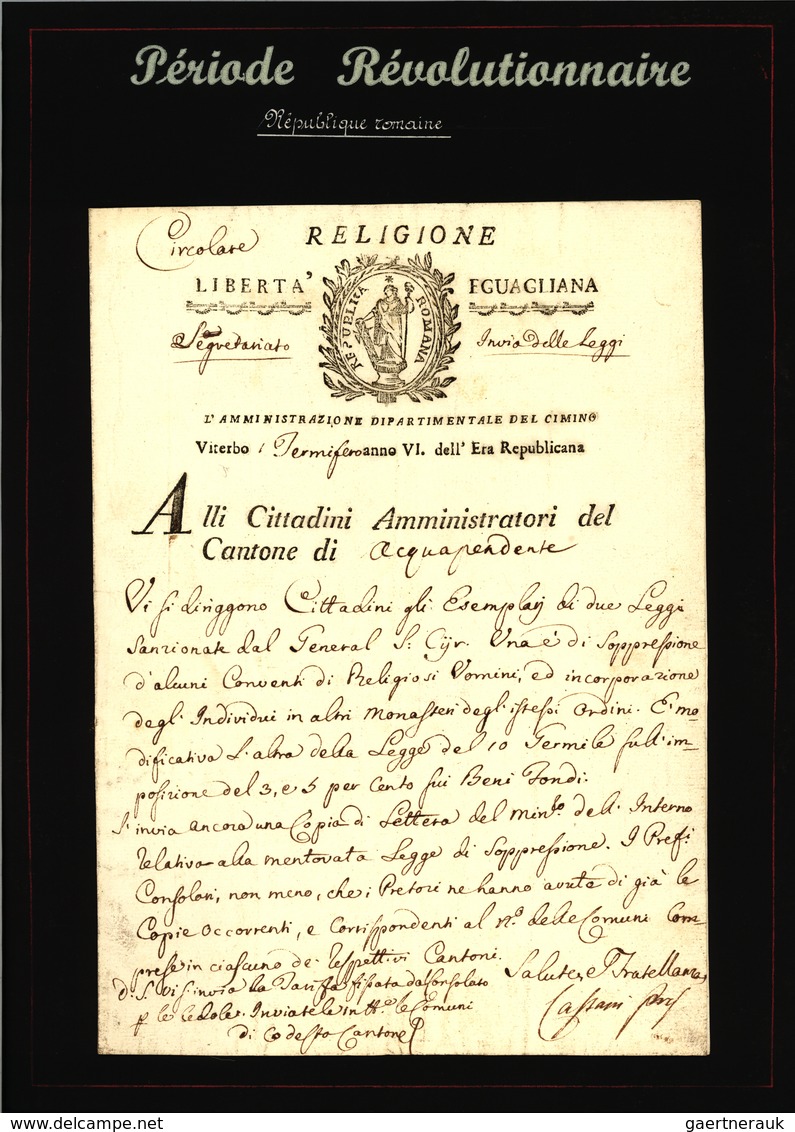 Période Révolutionnaire
République romaine
Circolare
RELIGIONE
LIBERTA' EGUAGLIANA
REPUBLICA ROMANA
Segretariato
Invio delle Leggi
L'AMMINISTRAZIONE DIPARTIMENTALE DEL CIMINO
Viterbo 1 Termifero anno VI. dell' Era Republicana
Alli Cittadini Amministratori del
Cantone di Acquapendente
Vi si diriggono Cittadini gli Esemplarj di due Leggi
Sanzionate dal General S. Cyr. Una è di Soppressione
d'alcuni Conventi di Religiosi Uomini, ed incorporazione
degl' Individui in altri Monasteri degl' istessi Ordini. E' mo=
dificativa l'altra della Legge del 10 Termile sull' im=
posizione del 3, e 5 per Cento sui Beni Fondi.
S'invia ancora una Copia di Lettera del Minro. dell' Interno
relativa alla mentovata Legge di Soppressione. I Prefi.
Consolari, non meno, che i Pretori ne hanno avuta di già le
Copie occorrenti, e Corrispondenti al No. delle Comuni Com=
prese in ciascuno de' respettivi Cantoni.
Salute, e Fratellanza
d. S. vi s'invia la Tariffa fissata dal Consolato
p. le Cedole. Inviatela in tte. le Comuni
di codesto Cantone
delcampe.net
gaertnerauk